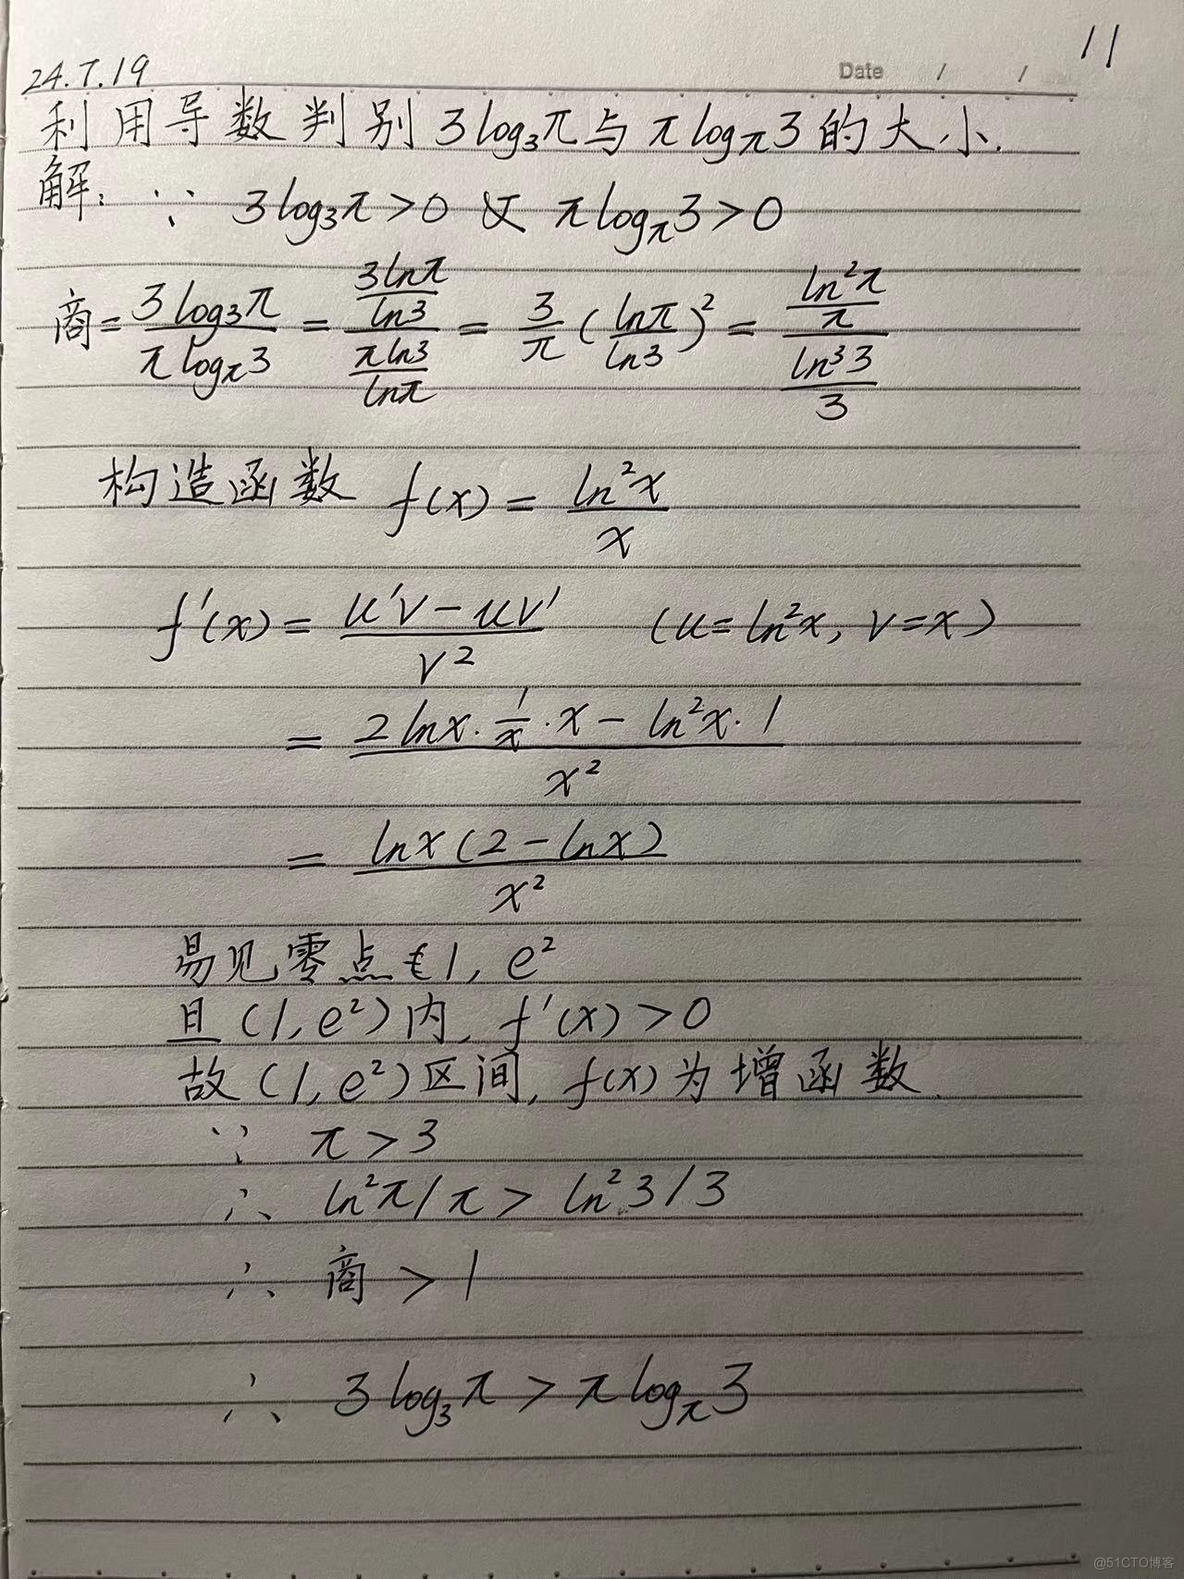 11
24.7.19
Date / /
利用导数判别 3log₃π与 πlog_π3 的大小.
解: ∵ 3log₃π>0 及 πlog_π3>0
商= (3log₃π)/(πlog_π3) = (3lnπ/ln3)/(πln3/lnπ) = 3/π (lnπ/ln3)² = (ln²π/π)/(ln³3/3)
构造函数 f(x) = ln²x/x
f'(x) = (u'v-uv')/v² (u=ln²x, v=x)
= (2lnx·1/x·x-ln²x·1)/x²
= lnx(2-lnx)/x²
易见零点 1, e²
且(1,e²)内, f'(x)>0
故(1,e²)区间, f(x)为增函数.
∵ π>3
∴ ln²π/π > ln²3/3
∴ 商 > 1
∴ 3log₃π > πlog_π3
@51CTO博客